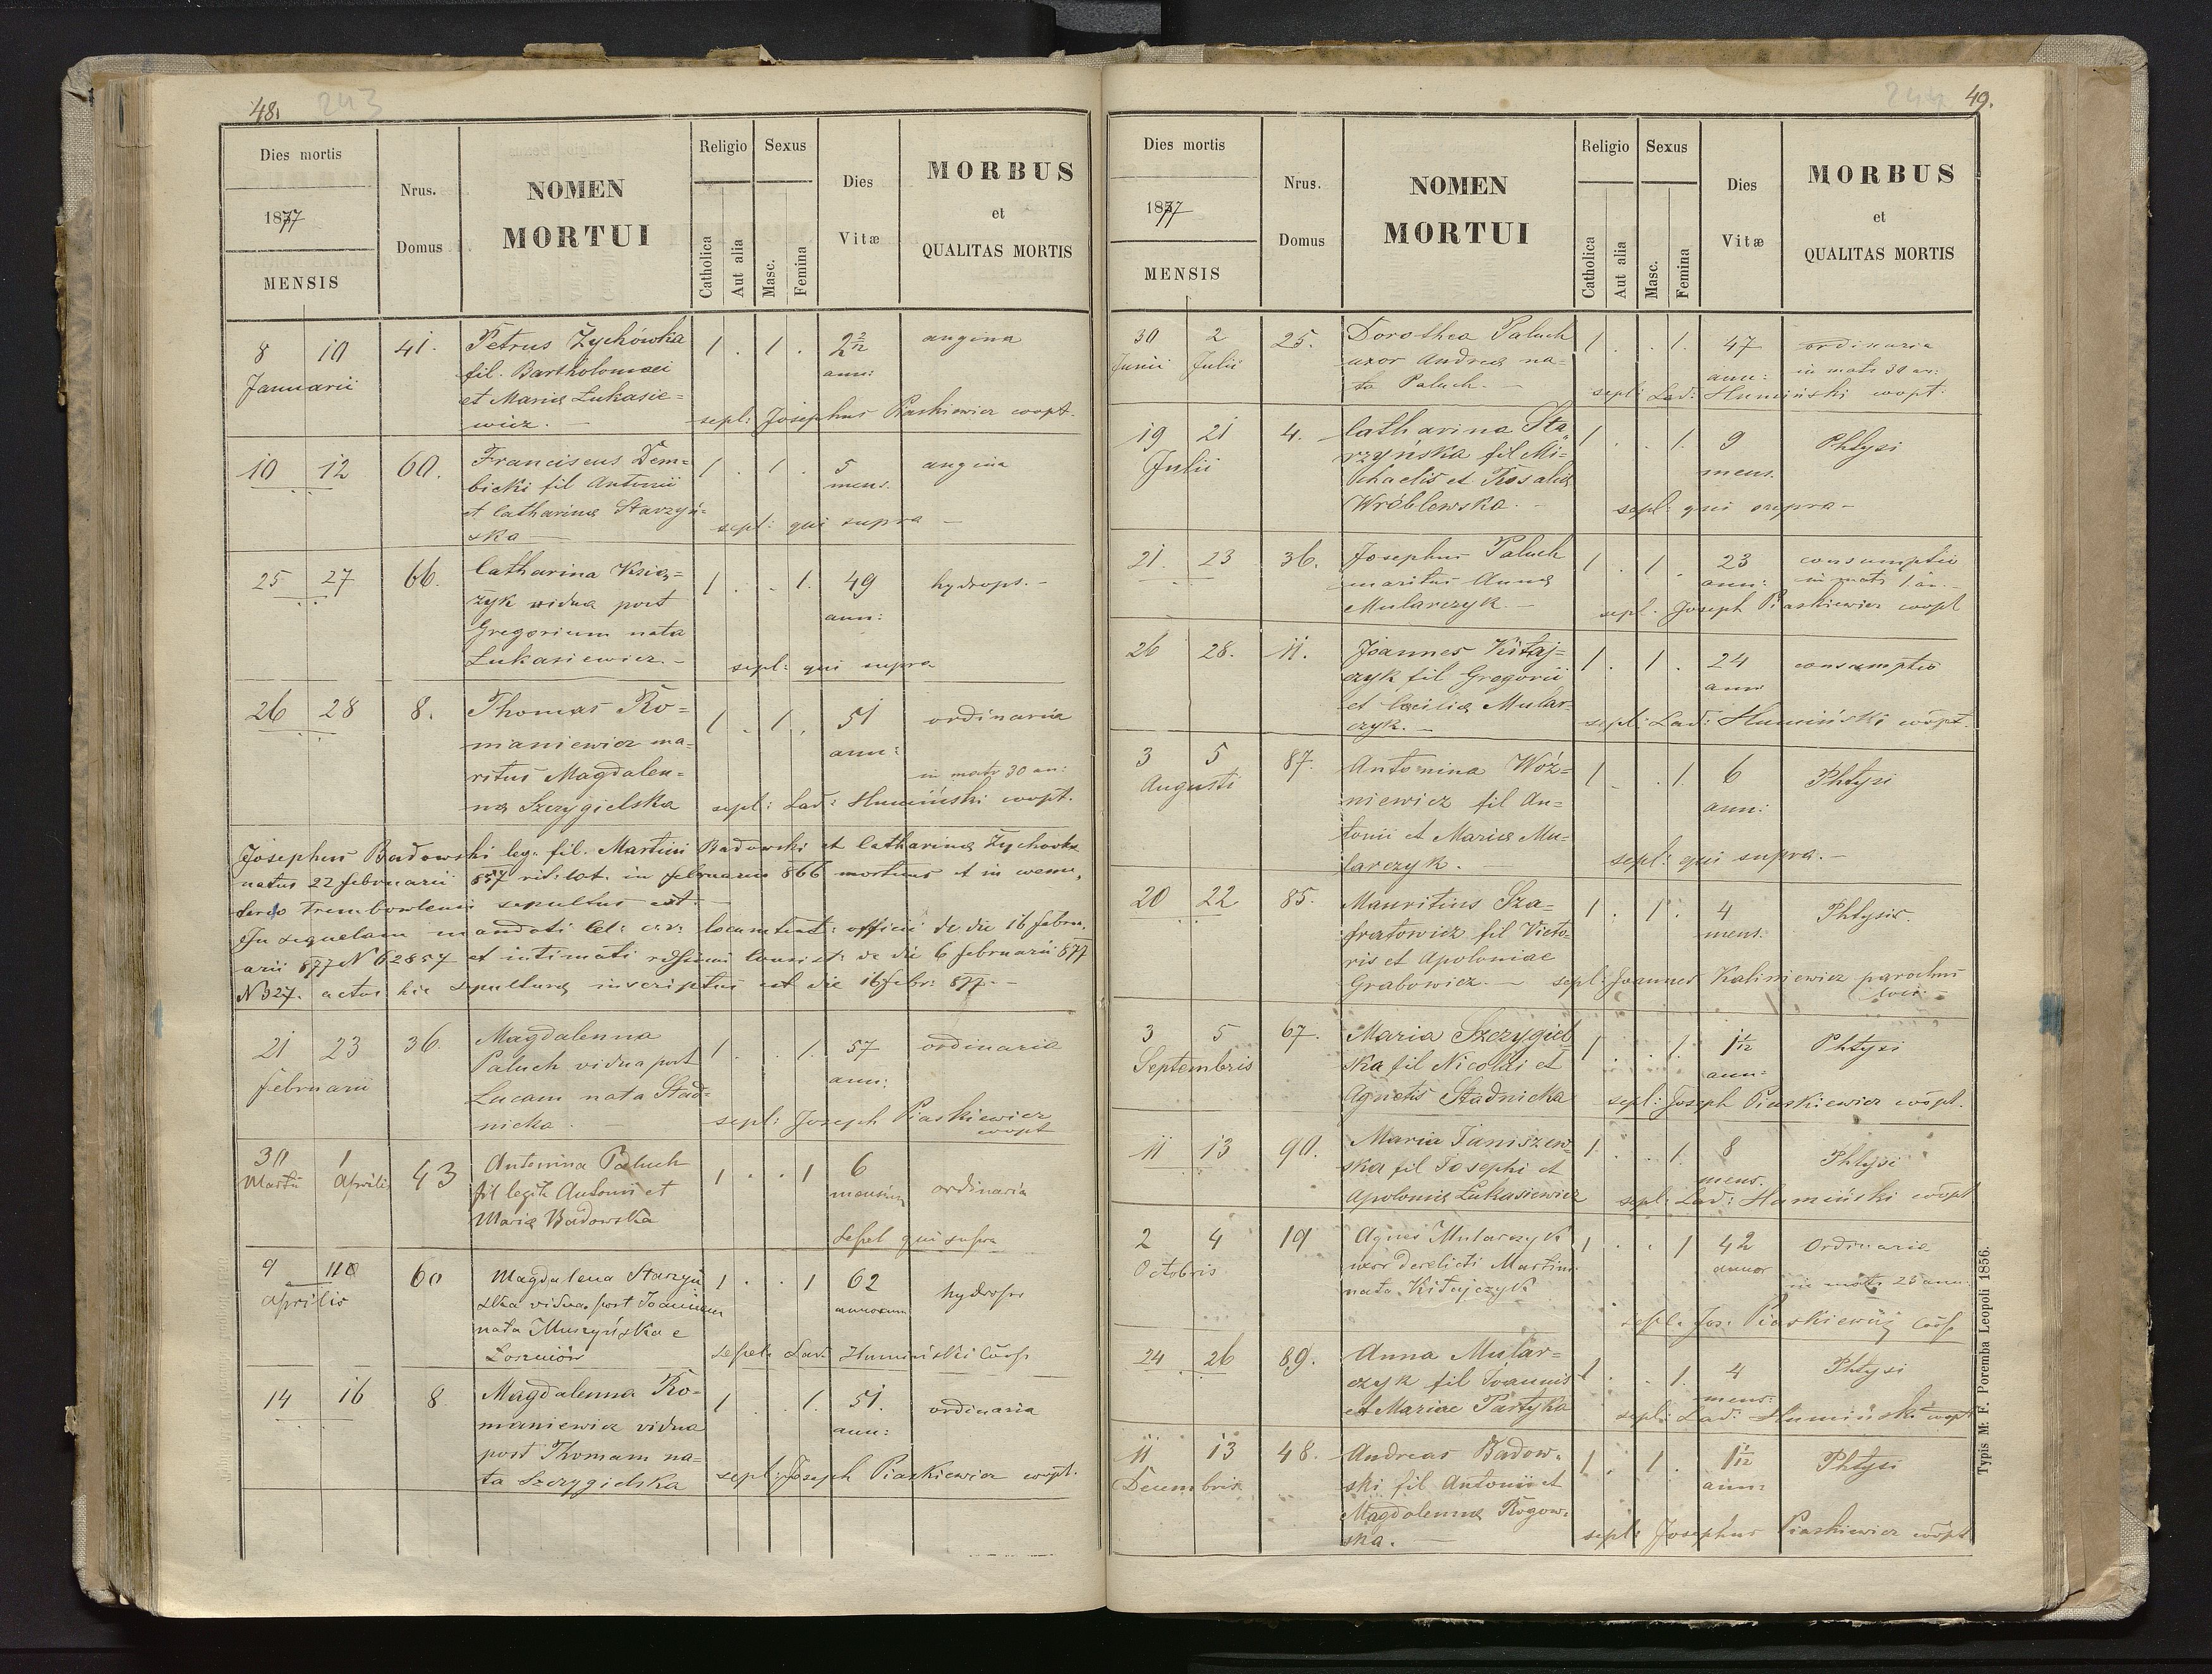 48.
243
Dies mortis
1877
MENSIS
Nrus.
Domus
NOMEN
MORTUI
Religio
Catholica
Aut alia
Sexus
Masc.
Femina
Dies
Vitæ
MORBUS
et
QUALITAS MORTIS
8 10 41. Petrus Zychówka 1 . 1 . 2 2/12 angina
Januarii fil. Bartholomaei ann:
et Mariæ Lukasie=
wicz. — sepl: Josephus Piaskiewicz coopt.
10 12 60. Franciscus Dem= 1 . 1 . 5 angina
bicki fil Antonii mens.
et Catharinæ Starzyń=
ska — sepl: qui supra —
25 27 66. Catharina Książ= 1 . . 1. 49 hydrops. —
żyk vidua post ann:
Gregorium nata
Lukasiewicz. — sepl: qui supra
26 28 8. Thomas Ro= 1 . 1 . 51 ordinaria
maniewicz ma= ann:
ritus Magdalen= in matr 30 an:
næ Szczygielska sepl: Lad: Humiński coopt.
Josephus Badowski leg. fil. Martini Badowski et Catharinæ Zychowka
natus 22 februarii 857 rit. lat. in februario 866 mortuus et in coeme,
terio Trembowlensi sepultus est. —
In sequelam mandati Cel: c.r. locumtent: officii de die 16 febru,
arii 877 N 62857 et intimati rdssimi Consist: de die 6 februarii 877
N 327. actus hic sepulturæ inscriptus est die 16 febr: 877. —
21 23 36. Magdalenna 1 . . 1. 57 ordinaria
februarii Paluch vidua post ann:
Lucam nata Stad=
nicka. — sepl: Joseph Piaskiewicz
coopt
30 1 43 Antonina Paluch 1 . . 1 6 ordinaria
Martii Aprilis fil legit Antonii et mensium
Mariæ Badowska
Sepel qui supra
9 10 60 Magdalena Starzyń 1 . . 1 62 hydrops
Aprilis ska vidua post Joannem annorum
nata Muszyńska e
Sepel. Lad. Humiński Coop
14 16 8 Magdalenna Ro- 1 . . 1. 51. ordinaria
maniewicz vidua ann:
post Thomam na-
ta Szczygielska sepl: Joseph Piaskiewicz coopt.
244
49.
Dies mortis
1877
MENSIS
Nrus.
Domus
NOMEN
MORTUI
Religio
Catholica
Aut alia
Sexus
Masc.
Femina
Dies
Vitæ
MORBUS
et
QUALITAS MORTIS
30 2 25. Dorothea Paluch 1 . . 1. 47 ordinaria
Junii Julii uxor Andreæ na- ann: in matr 30 an:
ta Paluch. — sepl: Lad: Humiński coopt.
19 21 4. Catharina Sta 1 . . 1. 9 Phtysi
Julii rzyńska fil Mi= mens.
chaelis et Rosaliæ
Wróblewska. — sepl: qui supra —
21. 23 36. Josephus Paluch 1 . 1 . 23 consumptio
maritus Annæ ann: in matr 1 an. —
Mularczyk. — sepl. Joseph Piaskiewicz coopt
26 28. 11. Joannes Kitaj= 1 . 1 . 24 consumptio
czyk fil Gregorii ann
et Cæciliæ Mular-
czyk. — sepl: Lad: Humiński coopt.
3 5 87. Antonina Woź= 1 . . 1. 6 Phtysi
Augusti niewicz fil An= ann:
tonii et Mariæ Mu=
larczyk. — sepl: qui supra. —
20 22 85. Mauritius Sza= 1 . 1 . 4 Phtysis.
fratowicz fil Victo- mens.
ris et Apoloniae
Grabowicz. — sepl: Joannes Kaliniewicz parochus
loci. —
3 5 67. Maria Szczygiel 1 . . 1. 1 1/12 Phtysi
Septembris ska fil Nicolai et ann:
Agnetis Stadnicka sepl: Joseph Piaskiewicz coopt.
11 13 90. Maria Janiszew= 1 . . 1. 8 Phtysi
ska fil Josephi et mens.
Apoloniæ Lukasiewicz sepl: Lad: Humiński coopt
2 4 19 Agnes Mularczyk 1 . . 1 42 Ordinaria
Octobris uxor derelicti Martini annor in matr. 25 ann.
nata Kitajczyk
Sepl. Jos. Piaskiewicz Coop
24 26 89. Anna Mular= 1 . . 1. 4 Phtysi
czyk fil Joannis mens.
et Mariae Partyka sepl: Lad: Humiński coopt
11 13 48. Andreas Badow= 1 . 1 . 1 1/12 Phtysi
Decembris ski fil Antonii et ann:
Magdalennæ Rogow=
ska. — sepl: Josephus Piaskiewicz coopt
Typis M. F. Poremba Leopoli 1856.